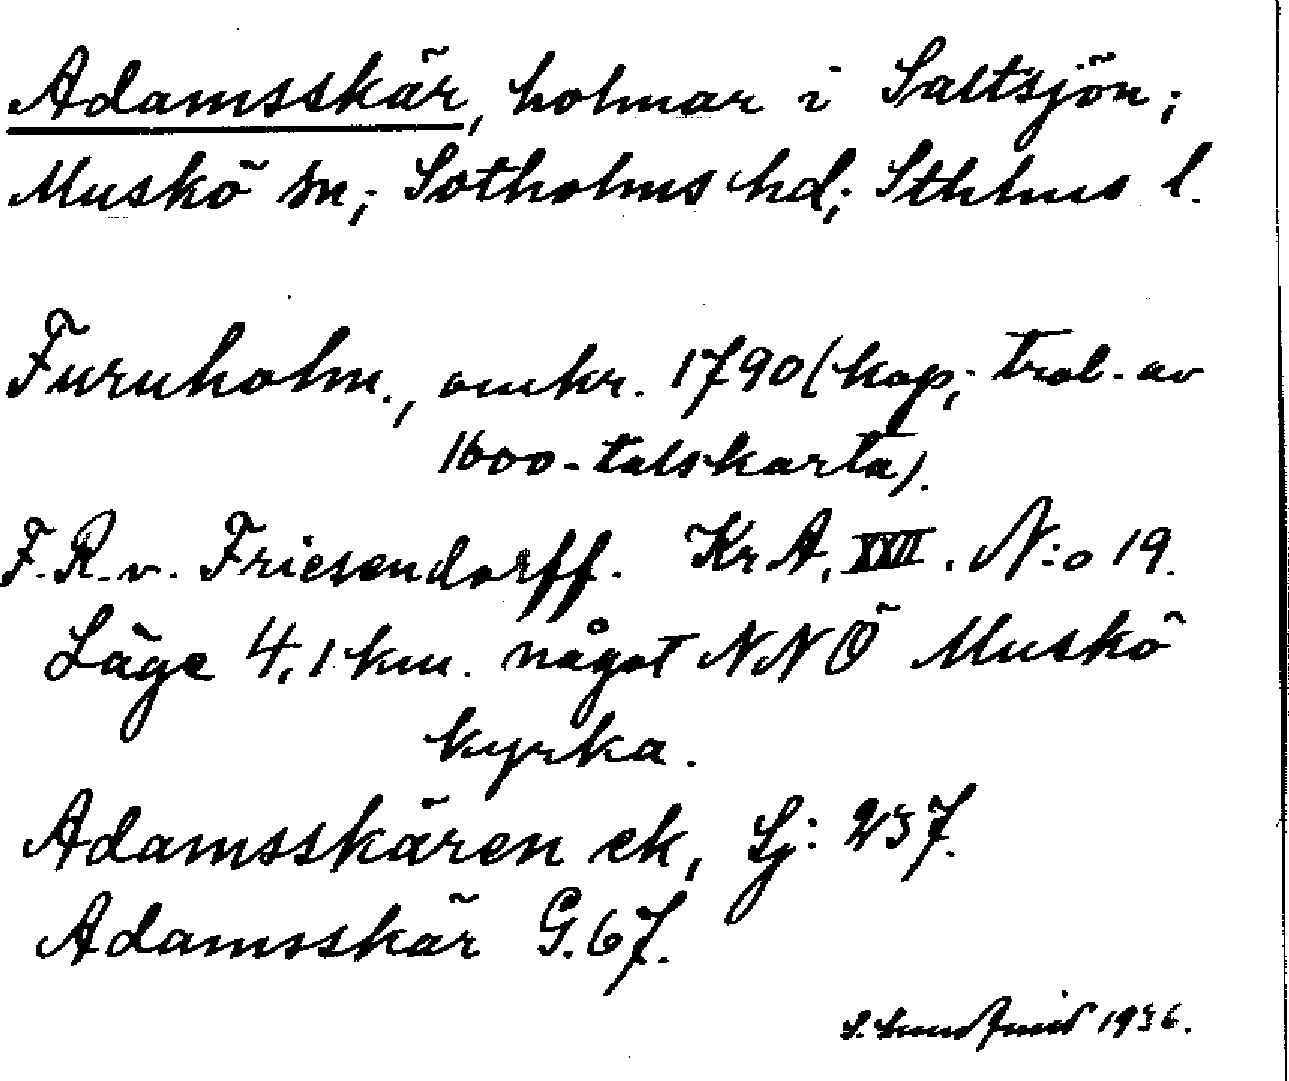 Adamsskär, holmar i Saltsjön;
Muskö sn; Sotholms hd; Sthlms l.
Furuholm., omkr. 1790 (kop; trol. av
1600-talskarta).
F. R. v. Friesendorff. Kr A, XXII. N:o 19.
Läge 4,1 km. något NNÖ Muskö
kyrka.
Adamsskären ek, Sj: 237.
Adamsskär G. 67.
S. 1936.